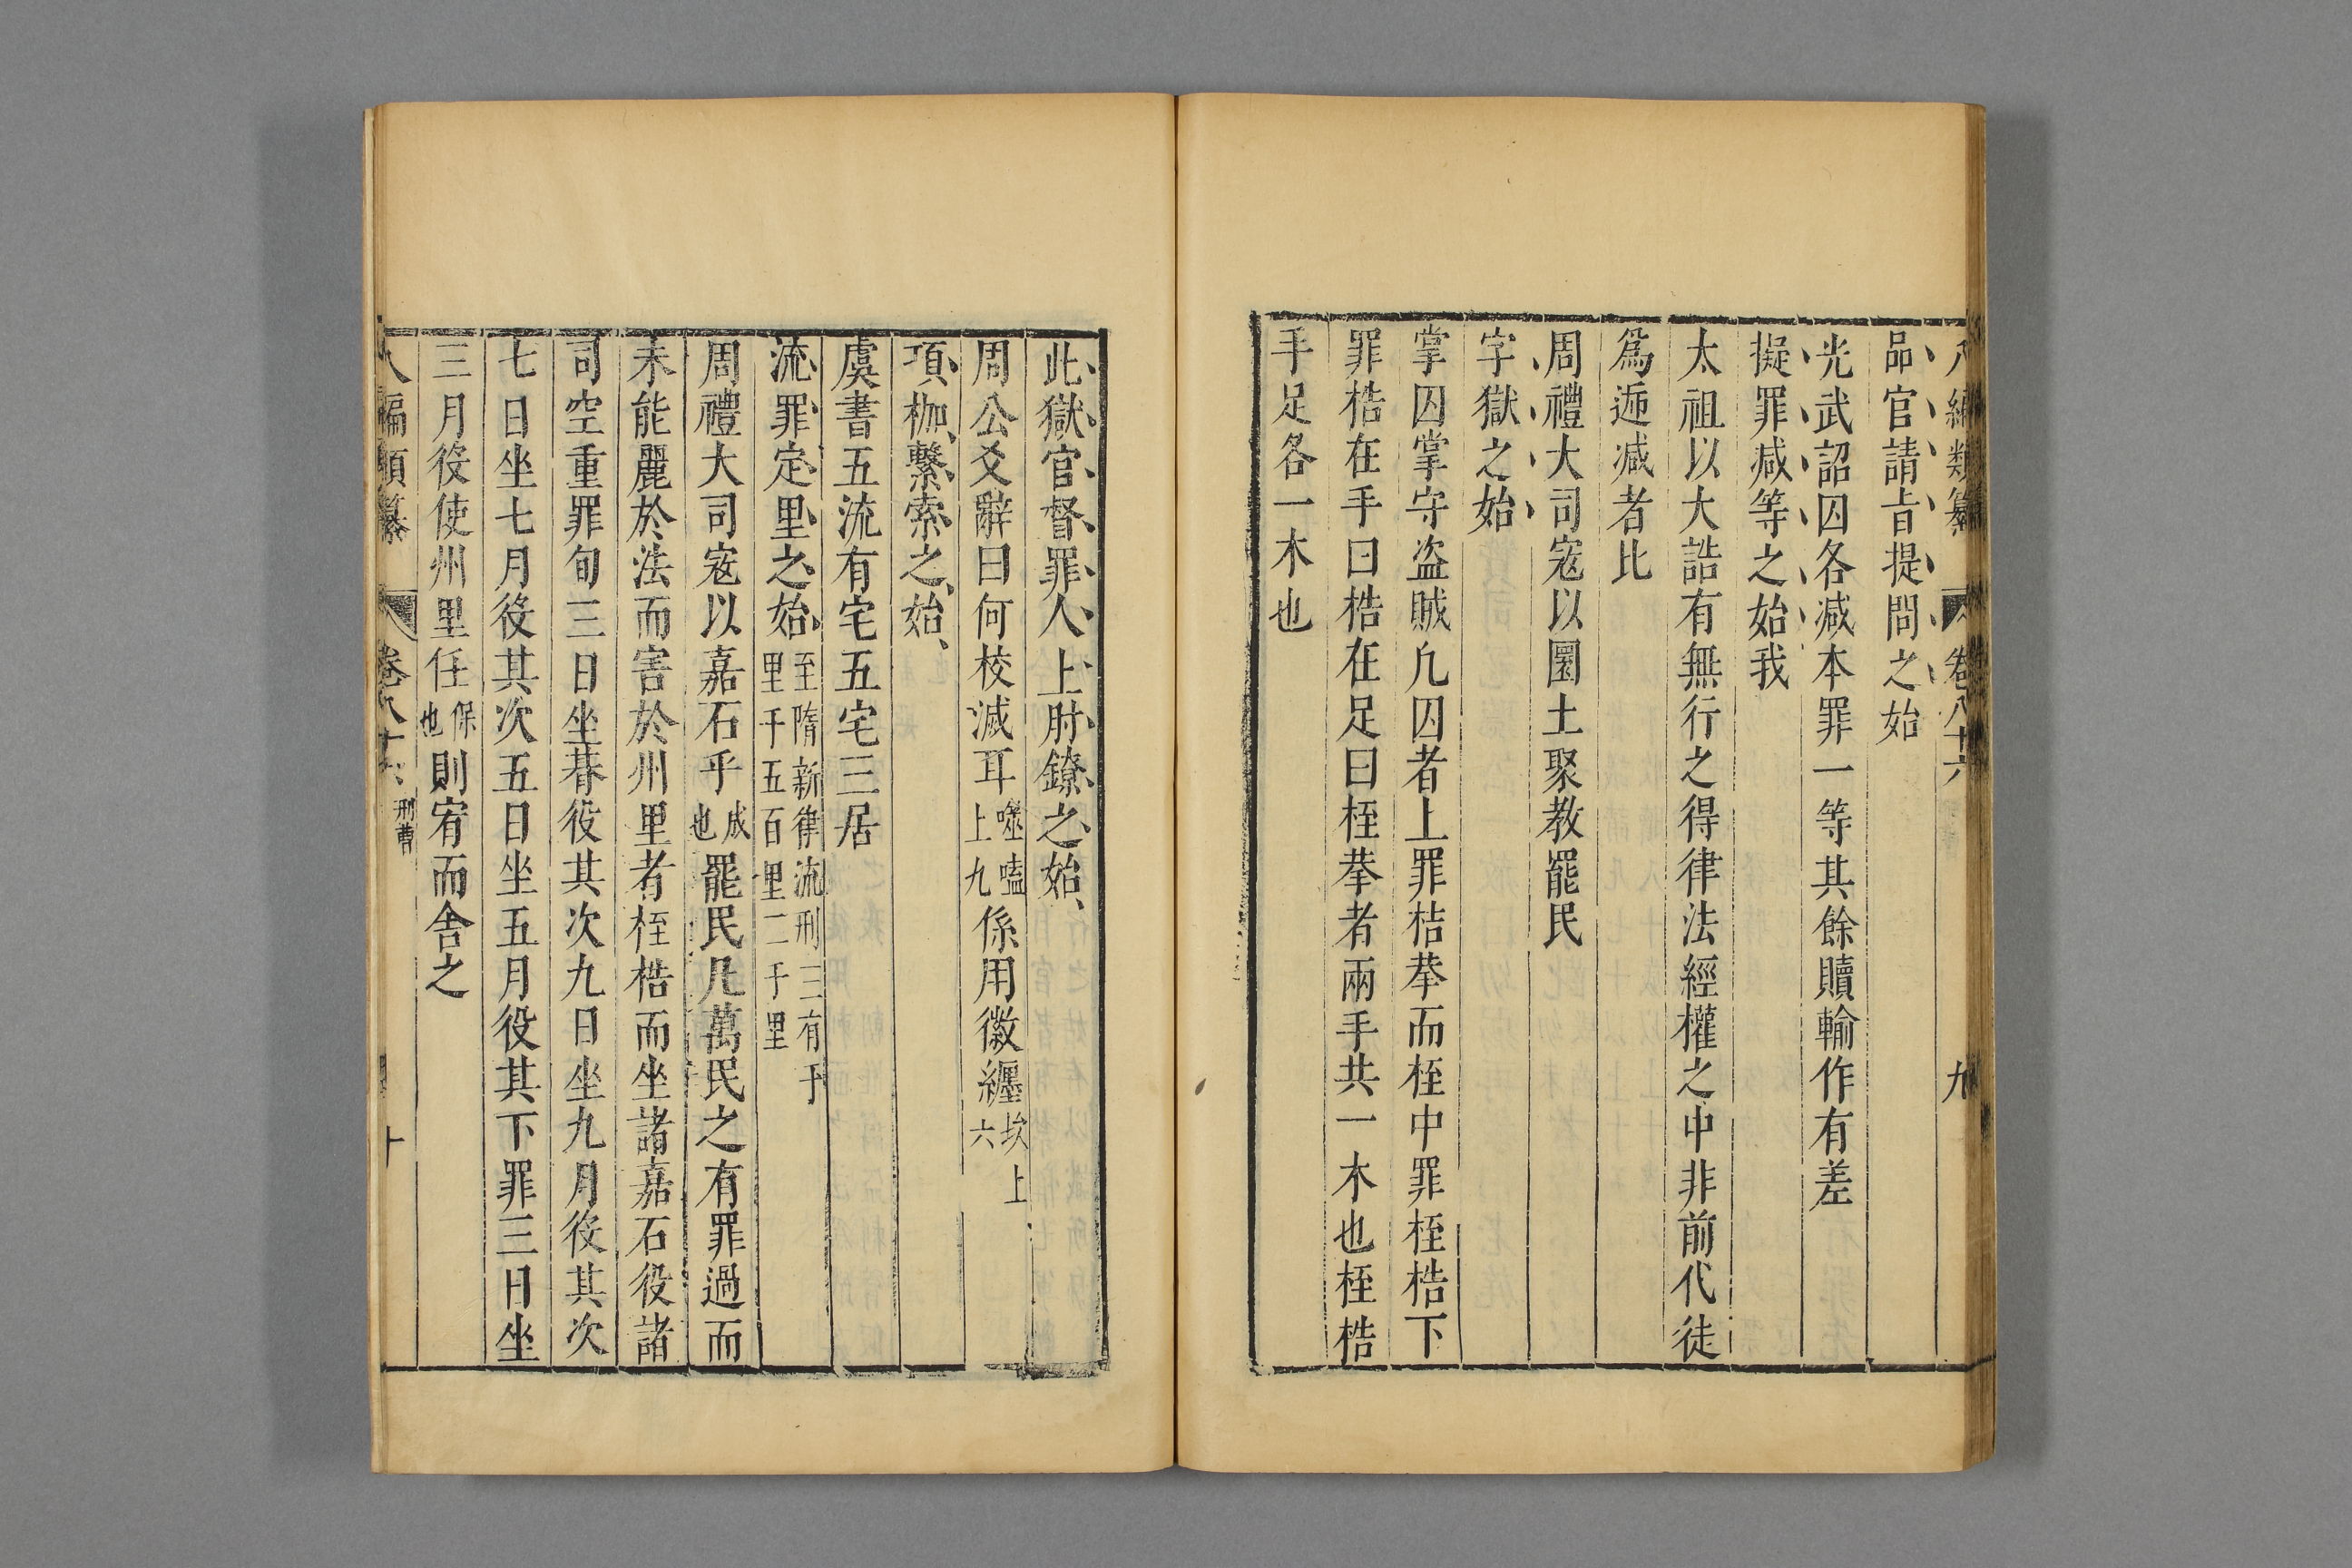 八編類纂 卷八十六 九
品官請旨提問之始
光武詔囚各减本罪一等其餘贖輸作有差
擬罪减等之始我
太祖以大誥有無行之得律法經權之中非前代徒
爲遞减者比
周禮大司寇以圜土聚教罷民
字獄之始
掌囚掌守盗賊凡囚者上罪梏拲而桎中罪桎梏下
罪梏在手曰梏在足曰桎拲者兩手共一木也桎梏
手足各一木也
此獄官督罪人上肘鐐之始
周公爻辭曰何校滅耳噬嗑上九係用徽纆坎上六
項枷繫索之始
虞書五流有宅五宅三居
流罪定里之始至隋新律流刑三有千里千五百里二千里
周禮大司寇以嘉石平成也罷民凡萬民之有罪過而
未能麗於法而害於州里者桎梏而坐諸嘉石役諸
司空重罪旬三日坐朞役其次九日坐九月役其次
七日坐七月役其次五日坐五月役其下罪三日坐
三月役使州里任保也則宥而舍之
八編類纂 卷八十六 刑曹 十